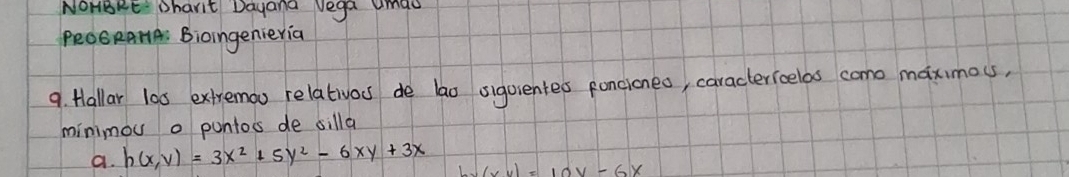 NOMBRE: Sharit Dayana Vega Umao
PROGRAMA: Bioingeniería
9. Hallar los extremos relativos de las siguientes funciones, caractericelos como máximos,
mínimos o puntos de silla
a. h(x,y) = 3x² + 5y² - 6xy + 3x
hy(x,y) = 10y - 6x